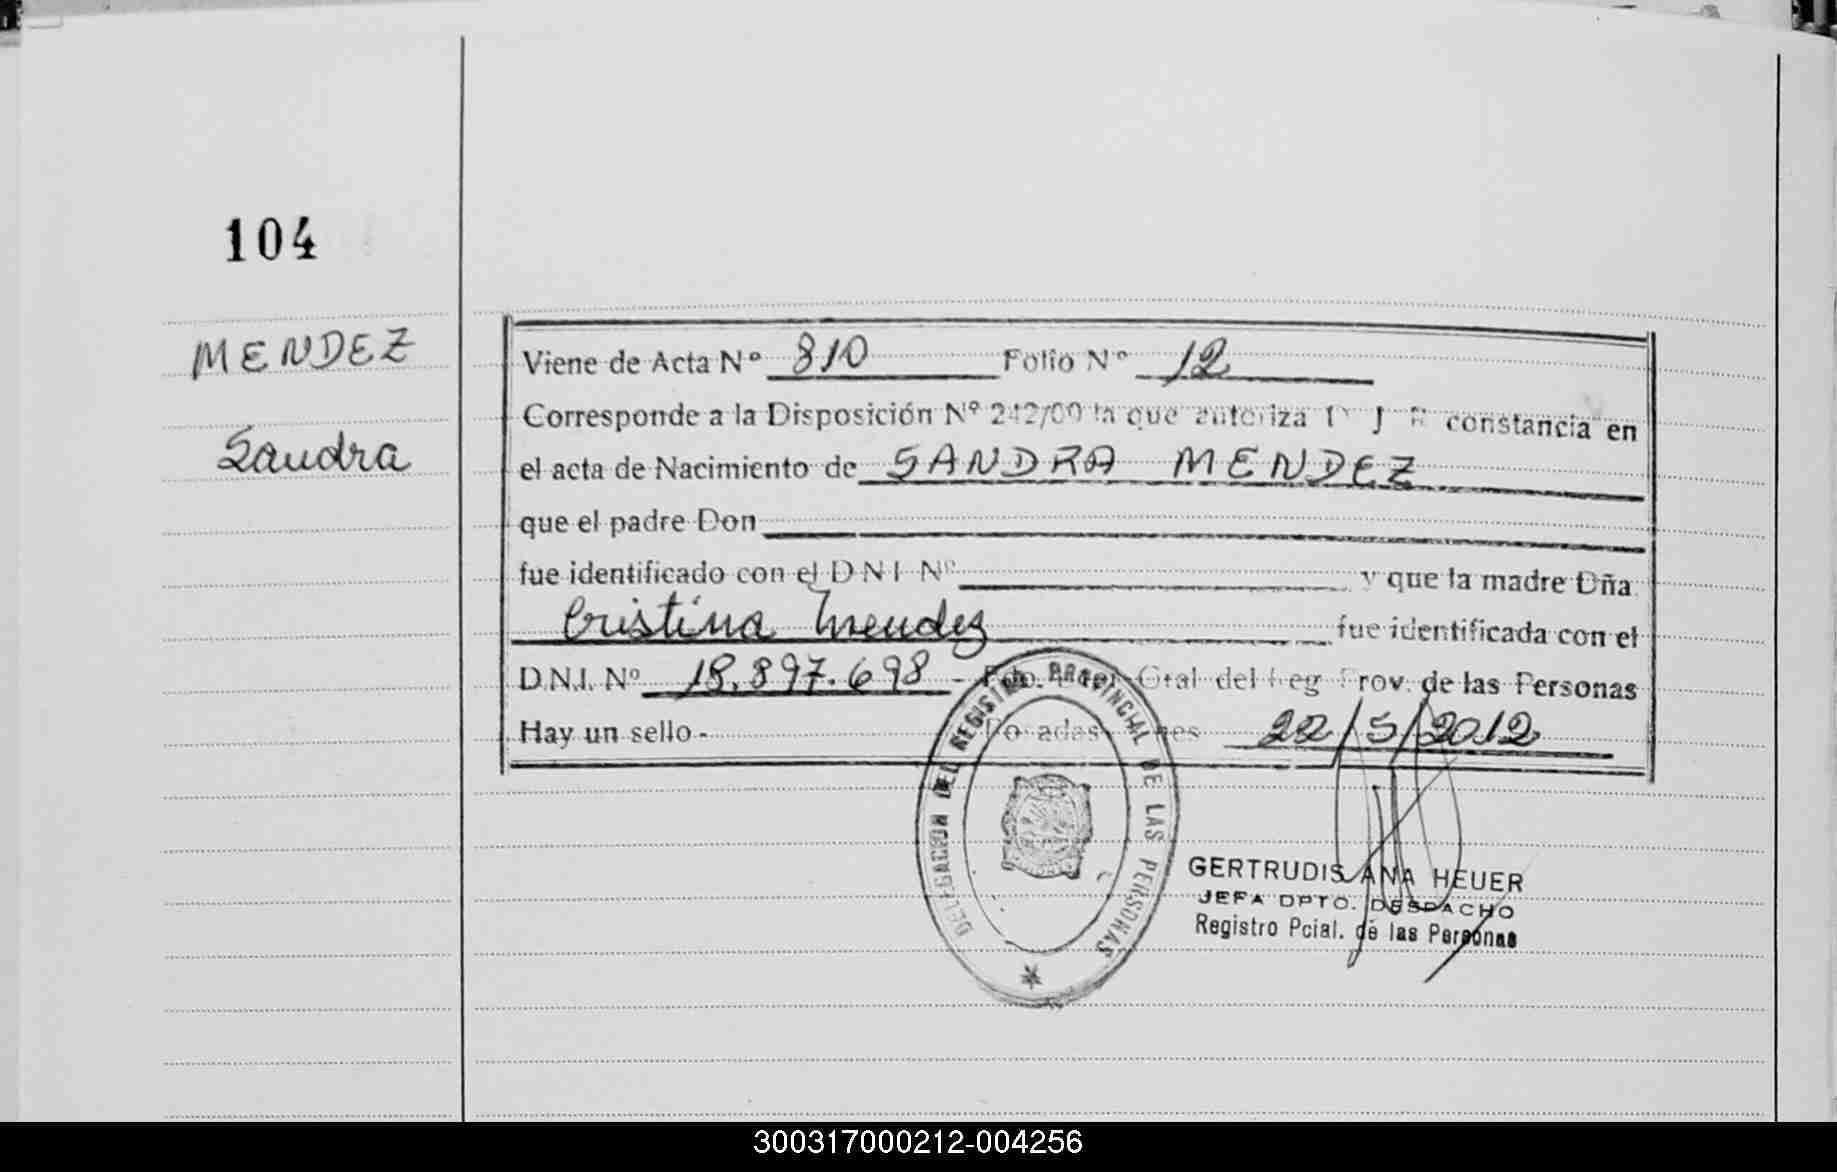 104
MENDEZ
Sandra
Viene de Acta Nº 810 Folio Nº 12
Corresponde a la Disposición Nº 242/00 la que autoriza constancia en
el acta de Nacimiento de SANDRA MENDEZ
que el padre Don
fue identificado con el D N I Nº y que la madre Dña.
Cristina Mendez fue identificada con el
D.N.I. Nº 18.897.698 - Fdo. Gral del Reg Prov. de las Personas
Hay un sello - Posadas 22/5/2012
DELEGACION DEL REGISTRO PROVINCIAL DE LAS PERSONAS
GERTRUDIS ANA HEUER
JEFA DPTO. DESPACHO
Registro Pcial. de las Personas
300317000212-004256